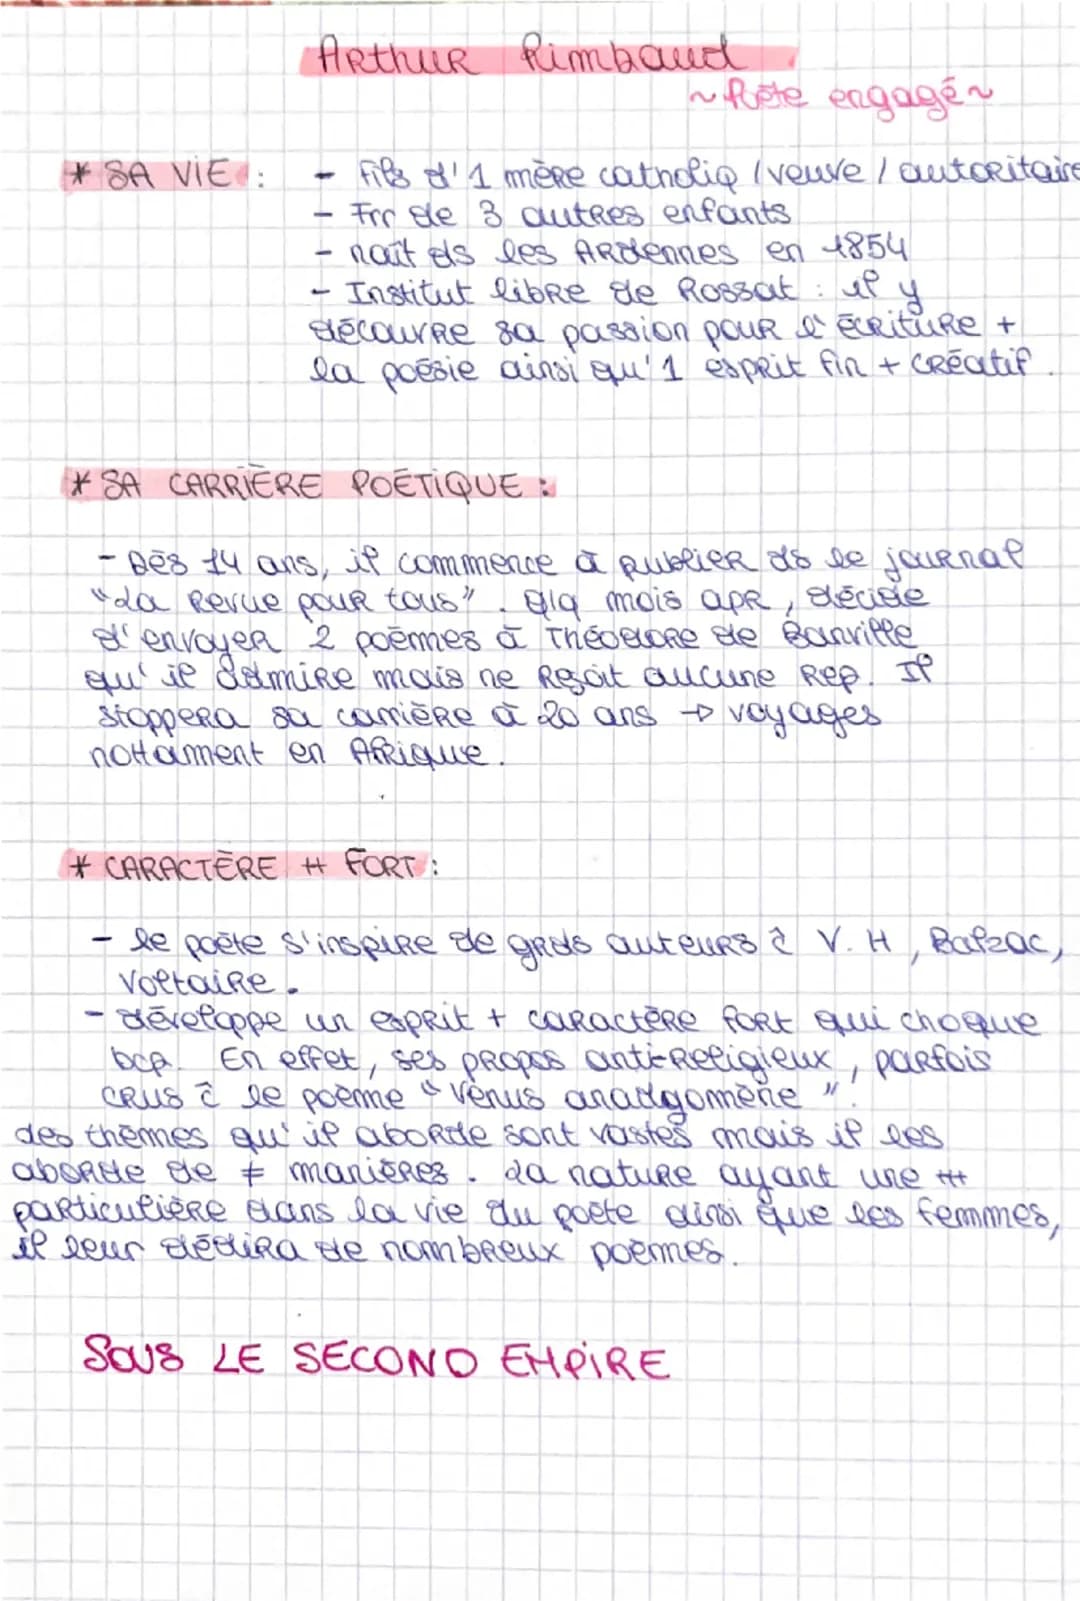 Arthur Rimbaud
~ Poète engagé ~
* SA VIE : - Fils d'1 mère catholiq / veuve / autoritaire
- Frr de 3 autres enfants
- naît ds les Ardennes en 1854
- Institut libre de Rossat : il y
découvre sa passion pour l'écriture +
la poésie ainsi qu'1 esprit fin + créatif.
* SA CARRIÈRE POÉTIQUE :
- Dès 14 ans, il commence à publier ds le journal
"La Revue pour tous". Qlq mois apr, décide
d'envoyer 2 poèmes à Théodore de Banville
qu'il admire mais ne reçoit aucune rep. Il
stoppera sa carrière à 20 ans → voyages
nottament en Afrique.
* CARACTÈRE # FORT :
- le poète s'inspire de grds auteurs ĉ V. H, Balzac,
Voltaire.
- développe un esprit + caractère fort qui choque
bcp. En effet, ses propos anti-religieux, parfois
crus ĉ le poème "Vénus anadyomène".
des thèmes qu'il aborde sont vastes mais il les
aborde de ≠ manières. La nature ayant une
particulière dans la vie du poète ainsi que les femmes,
il leur dédira de nombreux poèmes.
SOUS LE SECOND EMPIRE